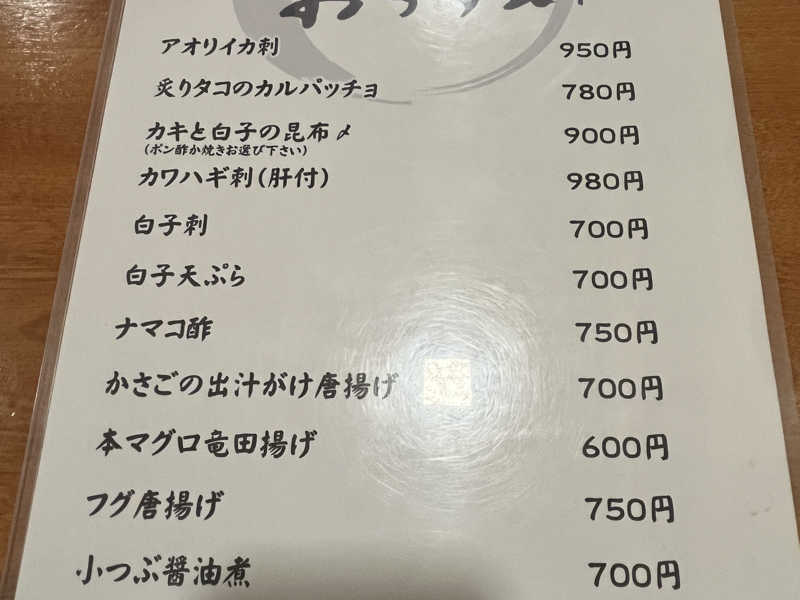 アオリイカ刺 950円
炙りタコのカルパッチョ 780円
カキと白子の昆布〆 900円
(ポン酢か焼きお選び下さい)
カワハギ刺(肝付) 980円
白子刺 700円
白子天ぷら 700円
ナマコ酢 750円
かさごの出汁がけ唐揚げ 700円
本マグロ竜田揚げ 600円
フグ唐揚げ 750円
小つぶ醤油煮 700円